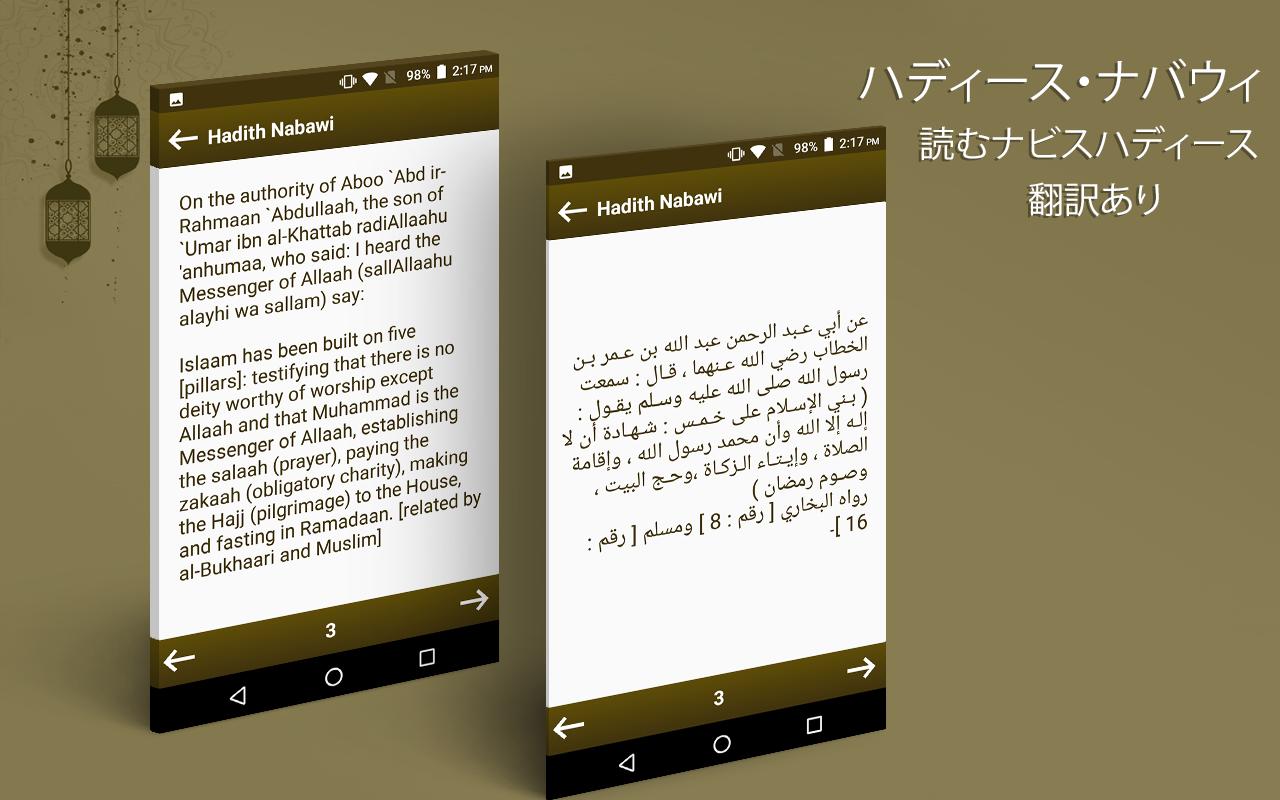 98% 2:17 PM
Hadith Nabawi
On the authority of Aboo `Abd ir-
Rahmaan `Abdullaah, the son of
`Umar ibn al-Khattab radiAllaahu
'anhumaa, who said: I heard the
Messenger of Allaah (sallAllaahu
alayhi wa sallam) say:
Islaam has been built on five
[pillars]: testifying that there is no
deity worthy of worship except
Allaah and that Muhammad is the
Messenger of Allaah, establishing
the salaah (prayer), paying the
zakaah (obligatory charity), making
the Hajj (pilgrimage) to the House,
and fasting in Ramadaan. [related by
al-Bukhaari and Muslim]
3
98% 2:17 PM
Hadith Nabawi
عن أبي عـبد الرحمن عبد الله بن عـمر بـن
الخطاب رضي الله عـنهما ، قـال : سمعت
رسول الله صلى الله عليه وسـلم يقـول :
( بـني الإسـلام على خـمـس : شـهـادة أن لا
إلـه إلا الله وأن محمد رسول الله ، وإقامة
الصلاة ، وإيـتـاء الـزكـاة ،وحـج البيت ،
وصـوم رمضان )
رواه البخاري [ رقم : 8 ] ومسلم [ رقم :
16 ]-
3
ハディース・ナバウィ
読むナビスハディース
翻訳あり